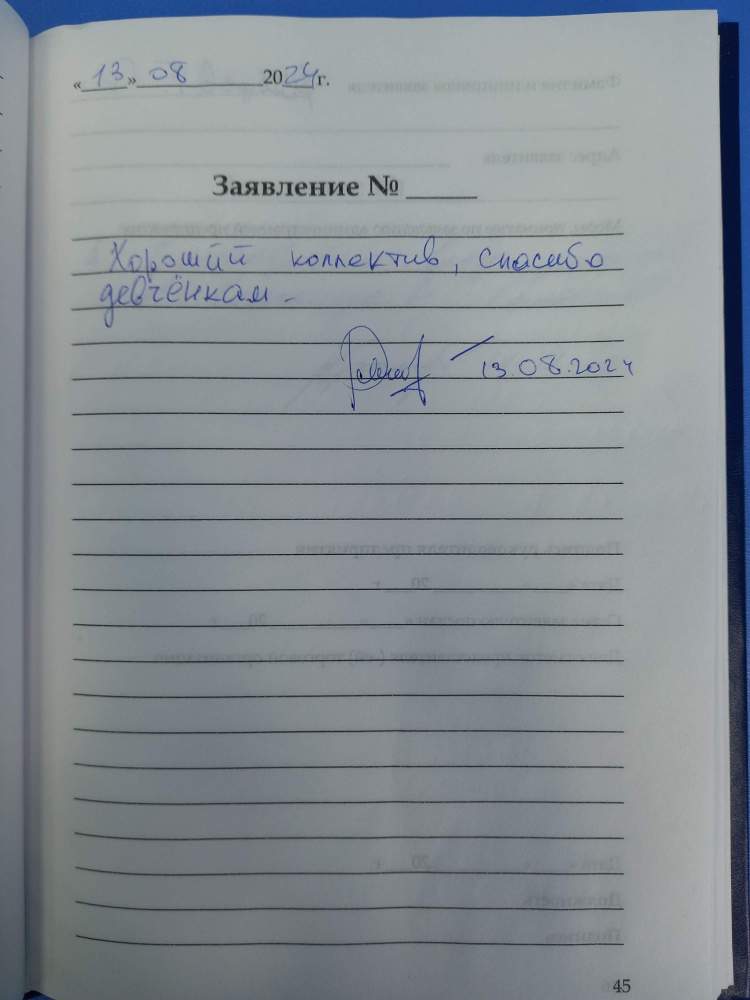 «13» 08 2024 г.
Заявление № _____
Хороший коллектив, спасибо
девчёнкам.
13.08.2024
45